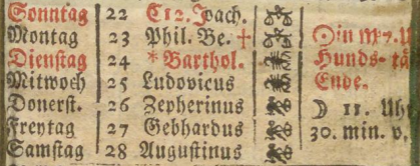 Sonntag 22 C12. Joach. ☉ in ♍. U
Montag 23 Phil. Be. † Hunds- tä
Dienstag 24 * Barthol. Ende.
Mitwoch 25 Ludovicus
Donerst. 26 Zepherinus ☽ 11. Uh
Freytag 27 Gebhardus 30. min. v,
Samstag 28 Augustinus